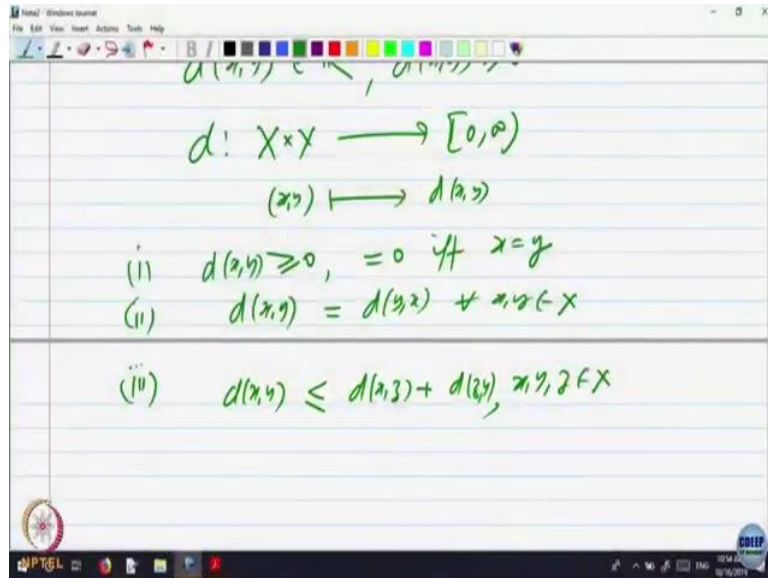 Note2 - Windows Journal
File Edit View Insert Actions Tools Help
d(x,y) ∈ ℝ, d(x,y) ≥ 0
d: X×X ⟶ [0,∞)
(x,y) ⟼ d(x,y)
(i) d(x,y) ≥ 0, = 0 iff x = y
(ii) d(x,y) = d(y,x) ∀ x,y ∈ X
(iii) d(x,y) ≤ d(x,z) + d(z,y), x,y,z ∈ X
NPTEL
CDEEP
ENG
10/16/2019